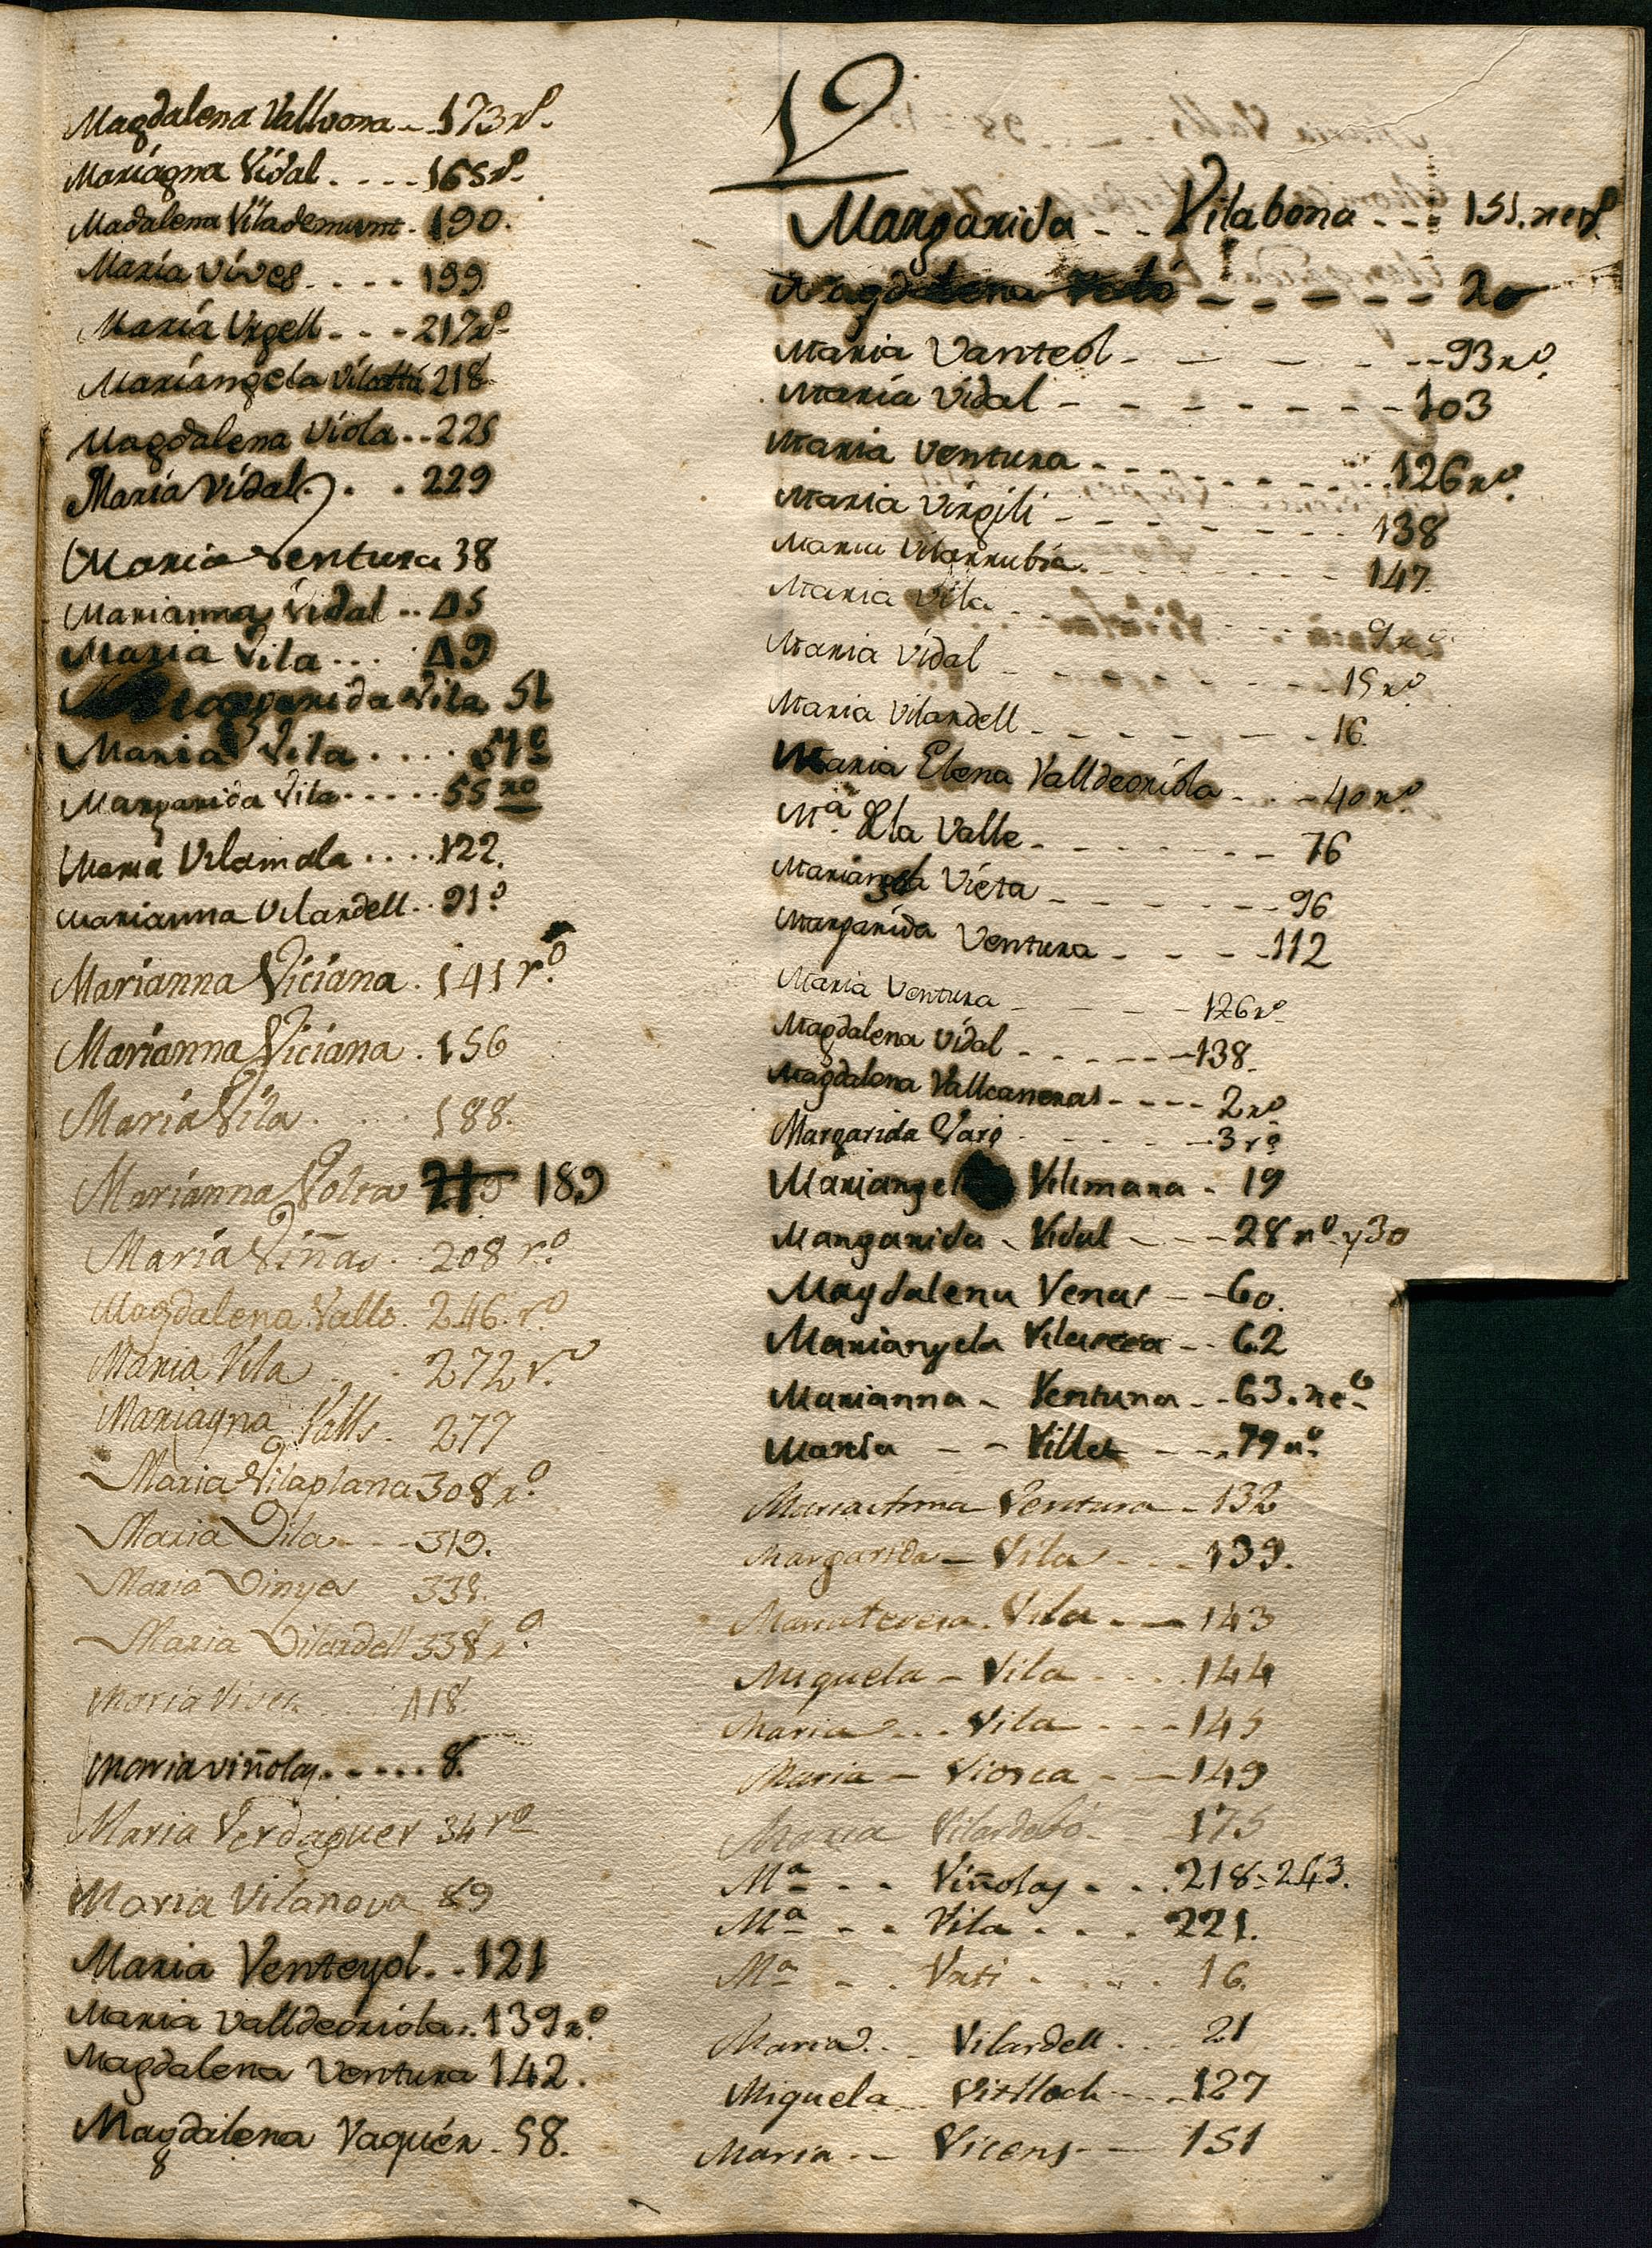 Magdalena Vallvona - - 173 rº.
Mariagna Vidal . - - - 165 rº.
Madalena Vilademunt . 190.
María Víves . - - - 199
María Urgell . - - - 217 rº.
Maríangela 218
Magdalena Viola . . 225
María Vidal . . . 229
Maria Ventura 38
Marianna Vidal . . 45
Maria Vila . . . 49
Margarida Vila 51
Maria Vila . . . .
Margarida Vila . . . . . 55 ro
Maria Vilamala . . . . 122.
Marianna Vilardell . . 91 º
Marianna Viciana . 141 r.º
Marianna Viciana . 156
Maria Vila . . . 188.
Marianna Volra 189
Maria Viñas . 208 r.º
Magdalena Valls . 246. r.º
Maria Vila . . 272 r.º
Mariagna Valls . 277
Maria Vilaplana 308 r.º
Maria Vila - - - 319.
Maria Vinyes 338.
Maria Vilardell 338 r.º
Maria Vives . . . . 418.
Maria viñolas . - . . . . 8.
Maria Verdaguer 34 rº
Maria Vilanova 89
Maria Venteyol . . 121
Maria Valldeoriola . . 139 r.º
Magdalena Ventura 142.
Magdalena Vaquér . 58.
V
Margarida - . Vilabona - - - 151. retº
Magdalena - - - - - 20
Maria Vanteol - - - - - 93 rº.
María Vidal - - - - - - - - 103
Maria Ventura - - - - - - - - 126 rº.
Maria Virgili - - - - - - - 138
Maria Vilarrubia - - - - - - - 147.
Maria Vila - - - - - - 9 rº
Maria Vidal - - - - - - - 15 rº
Maria Vilardell - - - - - - - 16.
Maria Elena Valldeoriola - - - 40 rº
Mª. Valle - - - - - - - 76
Mariangela Vieta - - - - - - 96
Margarida Ventura - - - - 112
Maria Ventura - - - - 126 rº
Magdalena Vidal - - - - - - 138.
Magdalena Vallcaneras - - - - 2 rº
Margarida Varó - - - - - 3 rº
Mariangel Vilimara - 19
Margarida - Vidal - - - 28 rº y 30
Magdalena Venas - - 60.
Mariangela - - 62
Marianna - Ventura - - 63. reº
Maria - - Viller - - - 79 rº
Maria Anna Ventura - 132
Margarida - Vila - - - 139.
Maria teresa . Vila - - 143
Miquela - Vila - . . . 144
Maria - . . Vila - - - 145
Maria - Viosca - - - 149
Maria Vilardebó - - 175
Mª - - Viñolas - . . 218 = 243.
Mª - - Vila . - . 221.
Mª - . . . . . 16.
Maria . - Vilardell . - 21
Miquela . . - - - 127
Maria - - Vicens - - 151